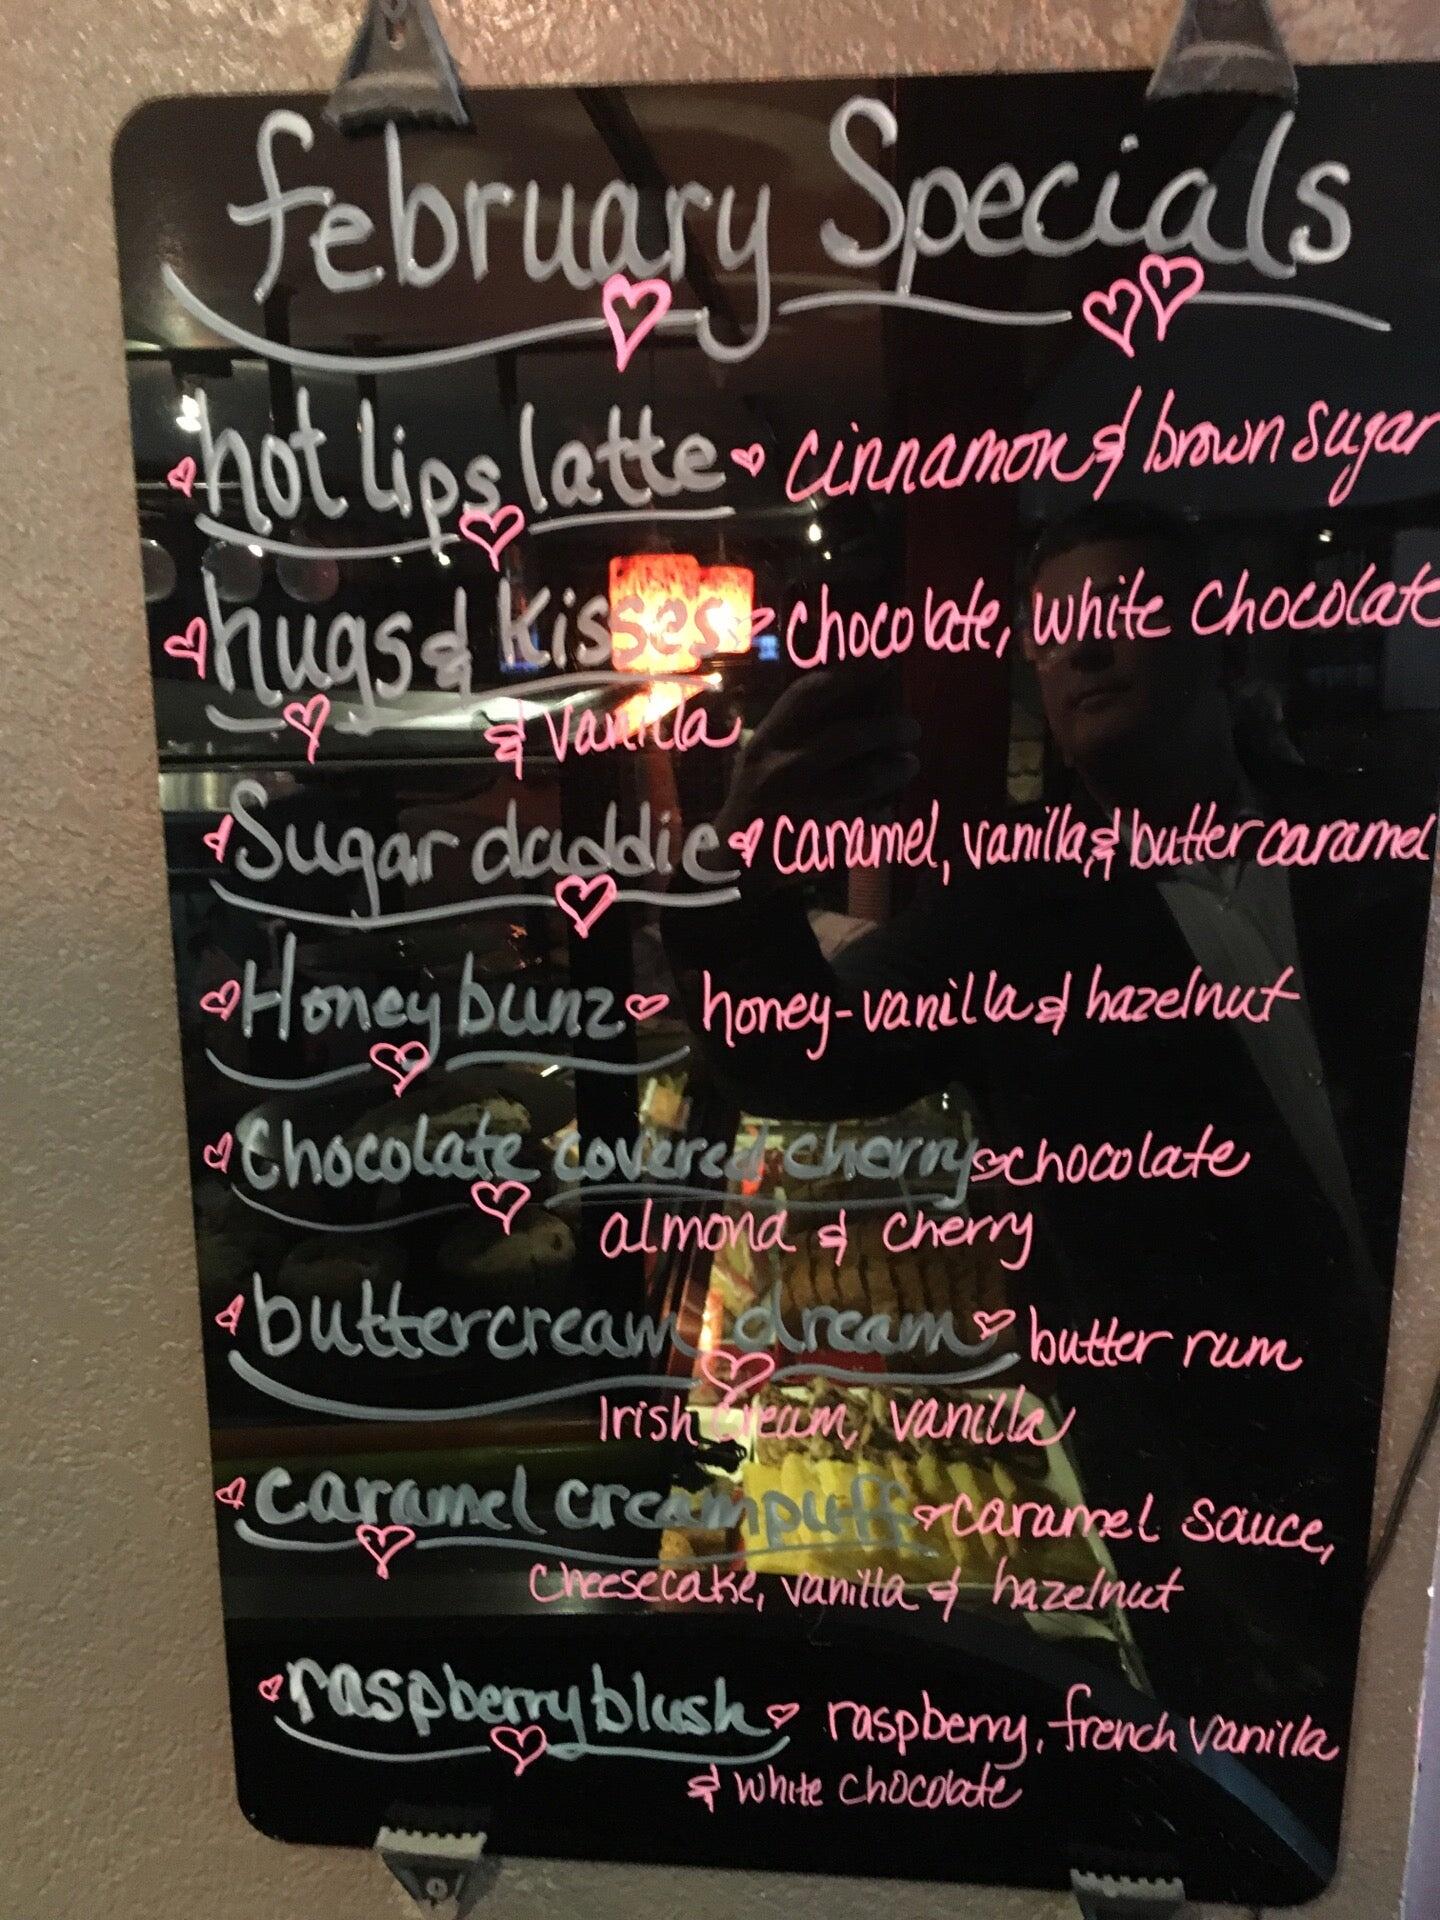 february Specials
hot lips latte cinnamon & brown sugar
hugs & kisses chocolate, white chocolate
& vanilla
Sugar daddie caramel, vanilla & butter caramel
Honey bunz honey-vanilla & hazelnut
Chocolate covered cherry chocolate
almond & cherry
buttercream dream butter rum
Irish cream, vanilla
caramel creampuff caramel sauce,
cheesecake, vanilla & hazelnut
raspberry blush raspberry, french vanilla
& white chocolate